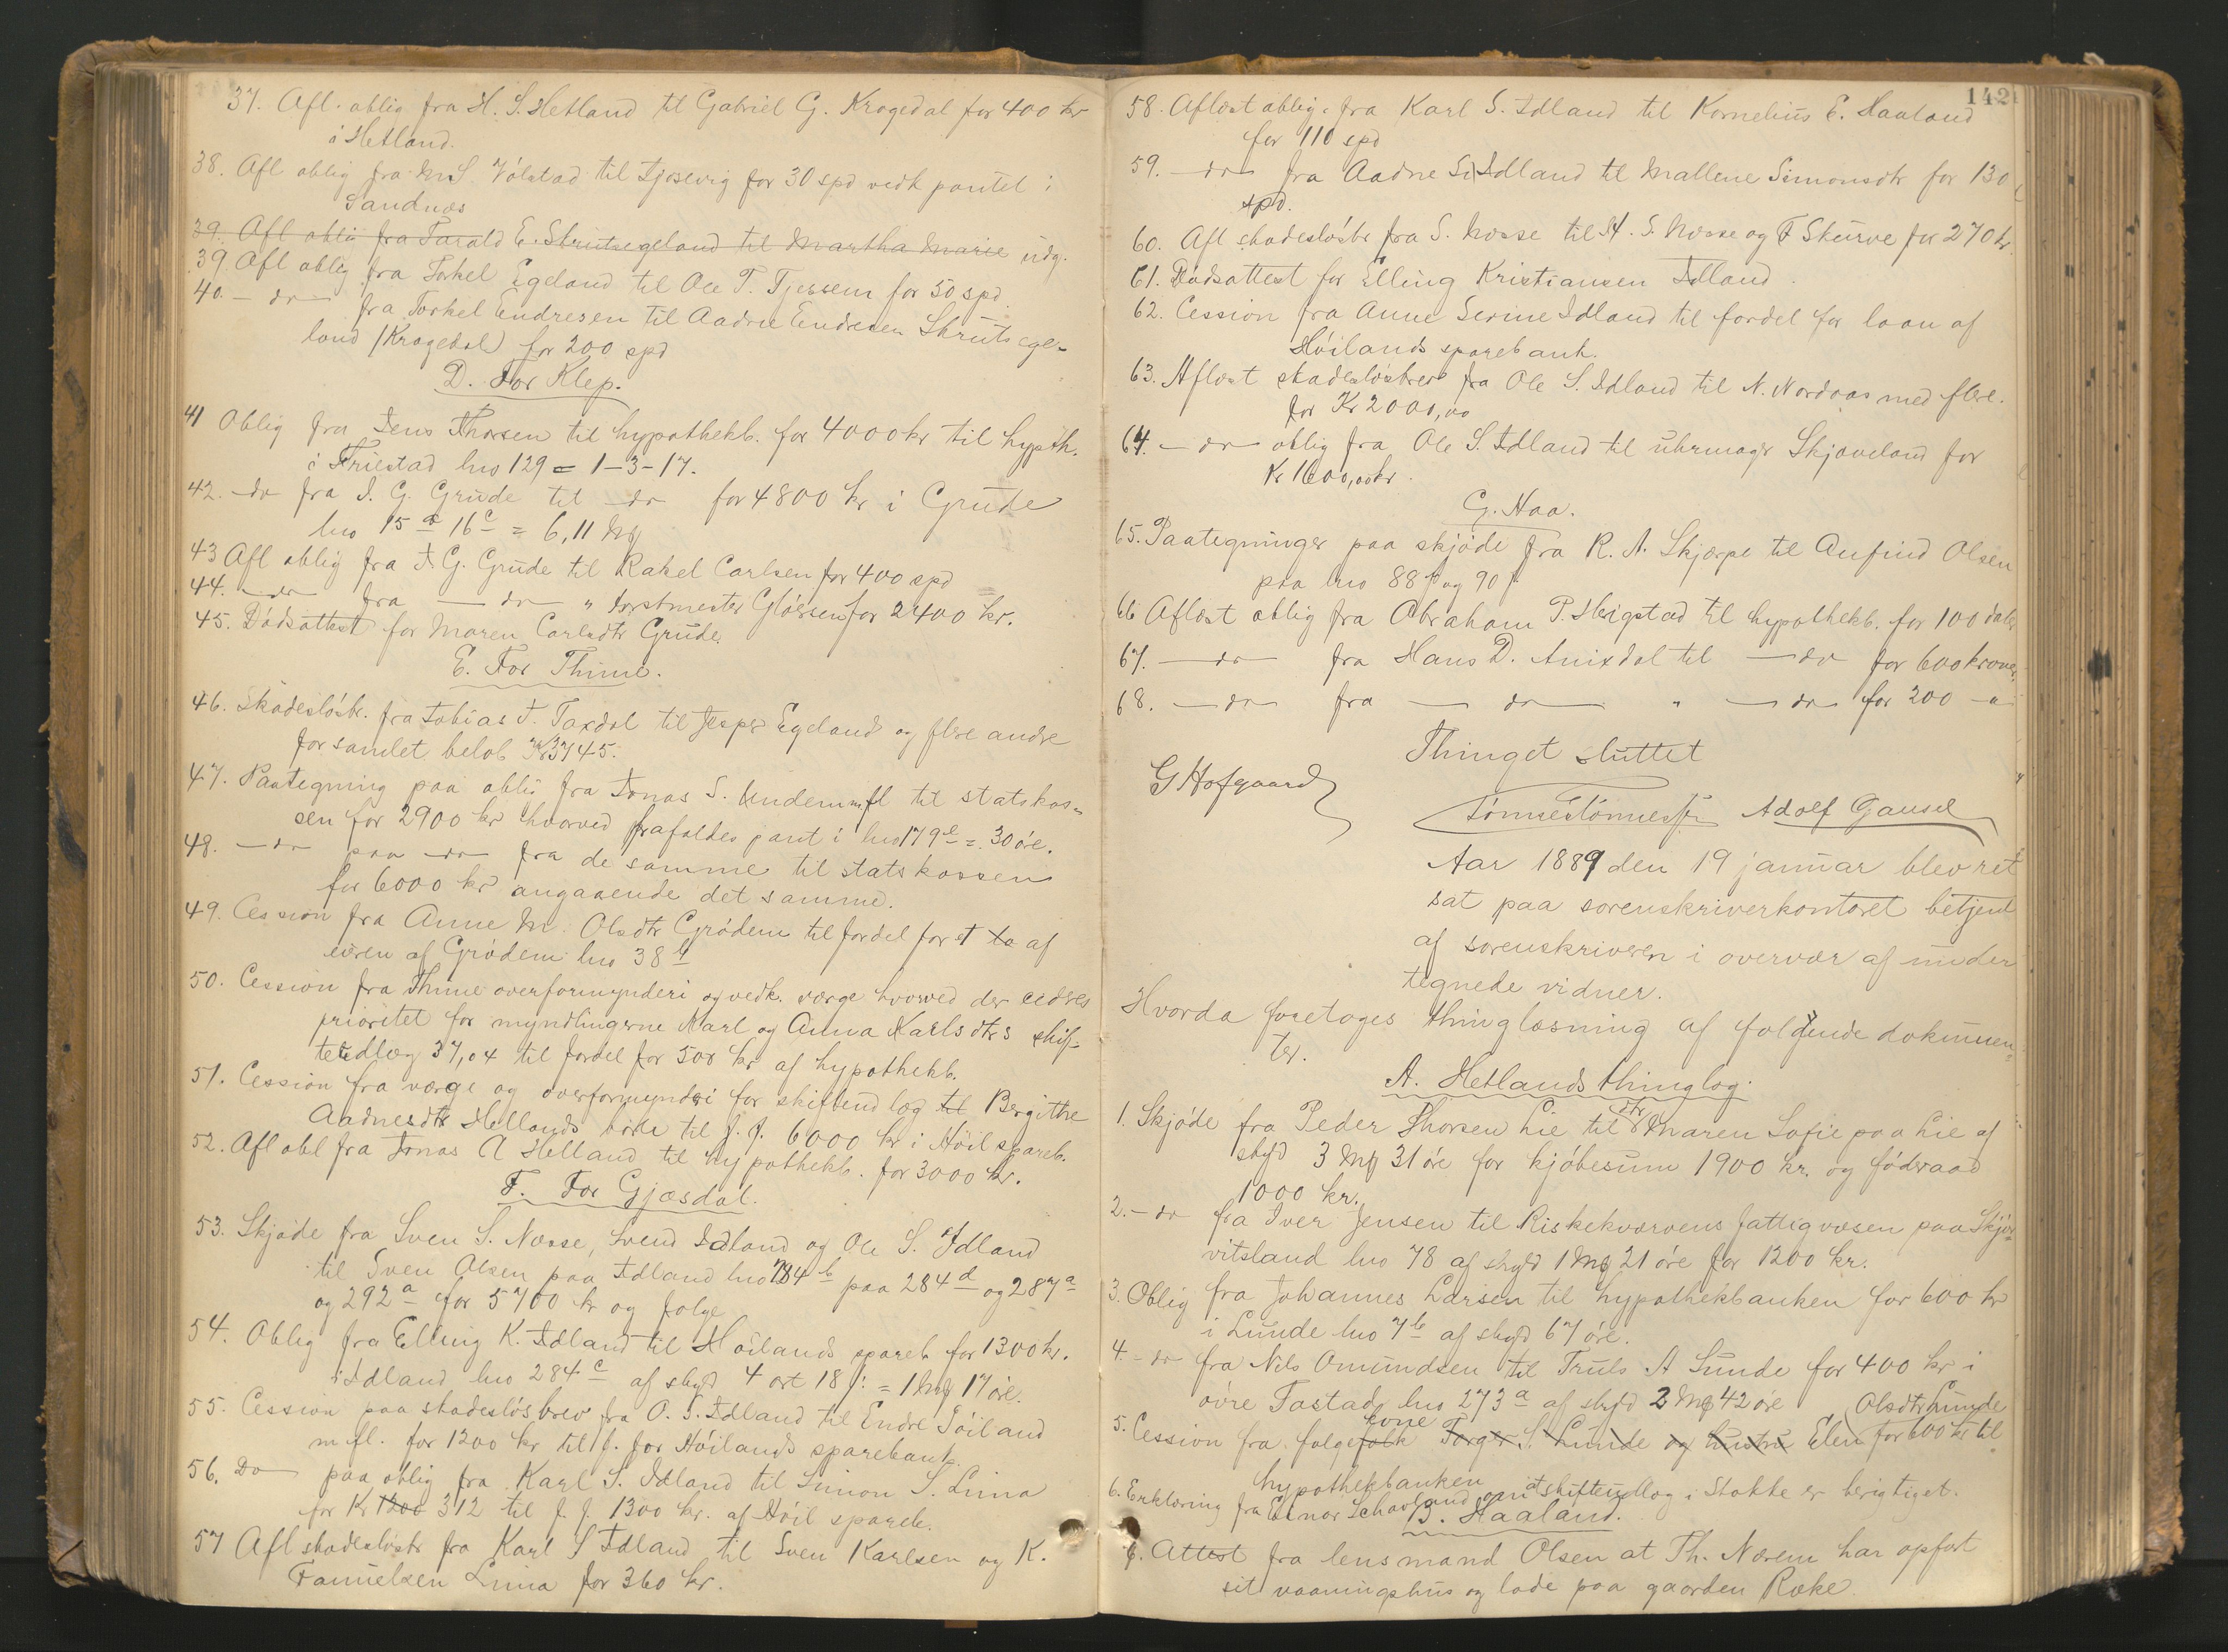 37. Afl. oblig fra H. S. Hetland til Gabriel G. Kragedal for 400 kr
i Hetland.
38. Afl oblig fra M. S. Vølstad til Tjosevig for 30 spd vedk pantet i
Sandnæs
39. Afl oblig fra Tarald E. Skrutsegeland til Martha Marie udg.
39. Afl oblig fra Torkel Egeland til Ole T. Tjessem for 50 spd.
40. — do — fra Torkel Endresen til Aadne Endresen Skrutsege-
land (Kragedal) for 200 spd
D. For Klep.
41 Oblig fra Jens Thorsen til hypothekb. for 4000 kr til hypth.
i Friestad lno 129 = 1-3-17.
42. — do fra J. G. Grude til — do for 4800 kr i Grude
lno 15 a 16 c = 6,11 Mk
43 Afl oblig fra J. G. Grude til Rakel Carlsen for 400 spd
44. — do fra — do — " forstmester Gløersen for 2400 kr.
45. Dødsattest for Maren Carlsdtr Grude
E. For Thime.
46. Skadesløsbr. fra Tobias T. Taxdal til Jesper Egeland og flere andre
for samlet beløb Kr 3745.
47. Paategning paa oblig fra Jonas S. Undem m fl til statskas-
sen for 2900 kr hvorved frafaldes pant i lno 179 e = 30 øre.
48. — do paa — do fra de samme til statskassen
for 6000 kr angaaende det samme.
49. Cession fra Anne M. Olsdtr Grødem til fordel for et to af
eieren af Grødem lno 38 b
50. Cession fra Thime overformynderi og vedk. værge hvorved der cederes
prioritet for myndlingerne Karl og Anna Karlsdtrs skif-
teudlæg 37,04 til fordel for 500 kr af hypothekb.
51. Cession fra værge og overformynderi for skifteudlæg til Bergitte
Aadnesdtr Hellands børn til f. f. 6000 kr i Høil spareb.
52. Afl obl fra Jonas A Helland til hypothekb. for 3000 kr.
F. For Gjæsdal.
53. Skjøde fra Sven S. Næsse, Svend Idland og Ole S. Idland
til Sven Olsen paa Idland lno 284 b paa 284 d og 287 a
og 292 a for 5700 kr og følge
54. Oblig fra Elling K. Idland til Høilands spareb for 1300 kr.
i Idland lno 284 c af skyld 4 ort 18 f: = 1 Mk 17 øre.
55. Cession paa skadesløsbrev fra O. S. Idland til Endre Søiland
m fl. for 1200 kr til f. for Høilands sparebank.
56. Do — paa oblig fra Karl S. Idland til Simon S. Lima
for Kr 1200 312 til f. f. 1300 kr. af Høil spareb.
57 Afl skadesløsbr fra Karl S Idland til Sven Karlsen og K.
Samuelsen Lima for 360 kr.
142
58. Aflæst oblig. fra Karl S. Idland til Kornelius E. Haaland
for 110 spd
59. — do fra Aadne S. Idland til Mallene Simonsdtr for 130
spd.
60. Afl skadesløsbr fra S. Næsse til A. S. Næsse og T Skurve for 270 kr.
61. Dødsattest for Elling Kristiansen Idland.
62. Cession fra Anne Serine Idland til fordel for laan af
Høilands sparebank.
63. Aflæst skadesløsbrev fra Ole S. Idland til N. Nordaas med flere.
for Kr 2000,00
64. — do oblig fra Ole S. Idland til uhrmagr Skjæveland for
Kr 1600,00 kr.
G. Haa.
65. Paategninger paa skjøde fra R. A. Skjerpe til Aufind Olsen
paa lno 88 f og 90 f
66 Aflæst oblig fra Abraham P. Høigstad til hypothekb. for 100 daler
67. — do — fra Hans D. Anixdal til — do for 600 kroner
68. — do fra — do — " — do for 200 —
Thinget sluttet
G Hofgaard
Tønnes Tønnessen Adolf Gausel
Aar 1889 den 19 januar blev ret
sat paa sorenskriverkontoret betjent
af sorenskriveren i overvær af under
tegnede vidner.
Hvorda foretoges thinglæsning af følgende dokumen-
ter.
A. Hetlands thinglag.
1. Skjøde fra Peder Thorsen Lie til dtr Maren Sofie paa Lie af
skyld 3 Mk 31 øre for kjøbesum 1900 kr. og føderaad
1000 kr.
2. — do fra Iver Jensen til Riskekvævens fattigvæsen paa Skjør-
vitsland lno 78 af skyld 1 Mk 21 øre for 1200 kr.
3. Oblig fra Johannes Larsen til hypothekbanken for 600 kr
i Lunde lno 7 b af skyld 67 øre.
4. — do fra Nils Omundsen til Truls A Lunde for 400 kr i
øvre Tastad lno 273 a af skyld 2 Mk 42 øre
5. Cession fra følgefolk kone Torger S. Lunde og hustru Elen Olsdtr Lunde for 600 kr til
hypothekbanken
6. Erklæring fra Elinor Schavland om at skifteudlæg i Stokke er berigtiget.
B. Haaland.
6. Attest fra lensmand Olsen at Th. Nærem har opført
sit vaaningshus og lade paa gaarden Ræke.